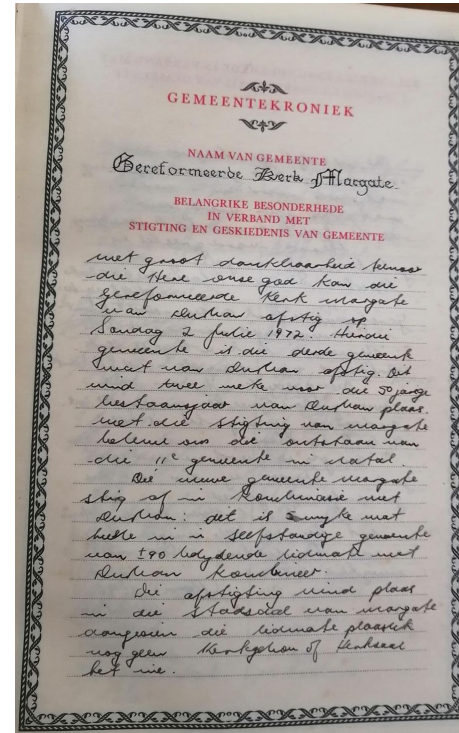 GEMEENTEKRONIEK
NAAM VAN GEMEENTE
Gereformeerde Kerk Margate.
BELANGRIKE BESONDERHEDE
IN VERBAND MET
STIGTING EN GESKIEDENIS VAN GEMEENTE
met groot dankbaarheid teenoor
die Here onse god kan die
gereformeerde Kerk Margate
van Durban afstig op
Sondag 2 Julie 1972. Hierdie
gemeente is die derde gemeente
wat van Durban afstig. Dit
vind twee weke voor die 50 jarige
bestaansjaar van Durban plaas.
met die stigting van Margate
beleme ons die ontstaan van
die 11e gemeente in Natal.
Die nuwe gemeente Margate
stig af in Kombinasie met
Durban: dit is wat
hulle in 'n selfstandige gemeente
van ±90 belydende lidmate met
Durban Kombineer.
Die afstigting vind plaas
in die stadsaal van Margate
aangesien die lidmate plaaslik
nog geen Kerkgebou of Kerksaal
het nie.